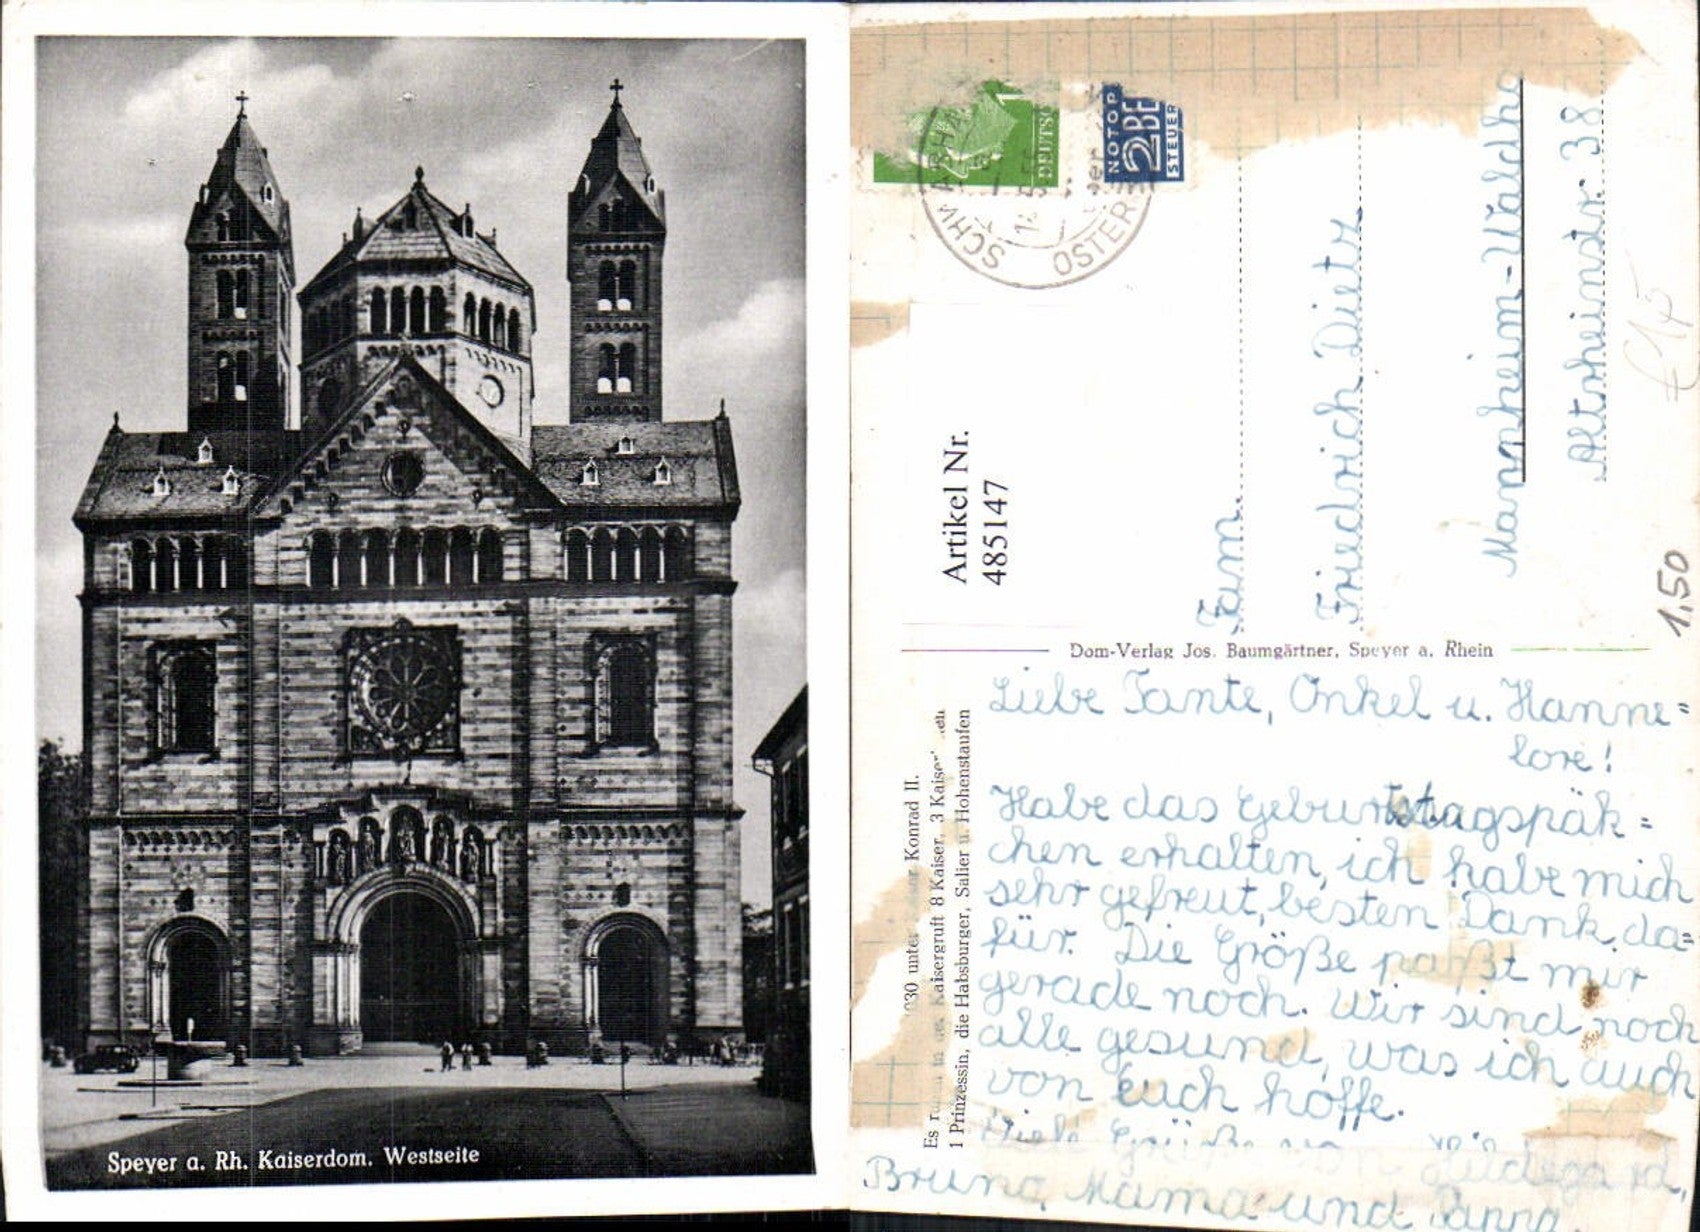 Speyer a. Rh. Kaiserdom. Westseite
DEUTSC
NOTOP
2
BE
STEUER
SCHW
OSTER
Artikel Nr.
485147
Fam.
Friedrich Dietz
Mannheim-Waldho
Altrheinstr. 38
€ 15
1,50
Dom-Verlag Jos. Baumgärtner, Speyer a. Rhein
030 unter Konrad II.
Es in Kaisergruft 8 Kaiser, 3 Kaiser
1 Prinzessin, die Habsburger, Salier u. Hohenstaufen
Liebe Tante, Onkel u. Hanne=
lore!
Habe das Geburtstagspäk=
chen erhalten, ich habe mich
sehr gefreut, besten Dank da=
für. Die Größe paßt mir
gerade noch. Wir sind noch
alle gesund, was ich auch
von Euch hoffe.
Viele Grüße von Hildegard,
Bruno, Mama und Pappa